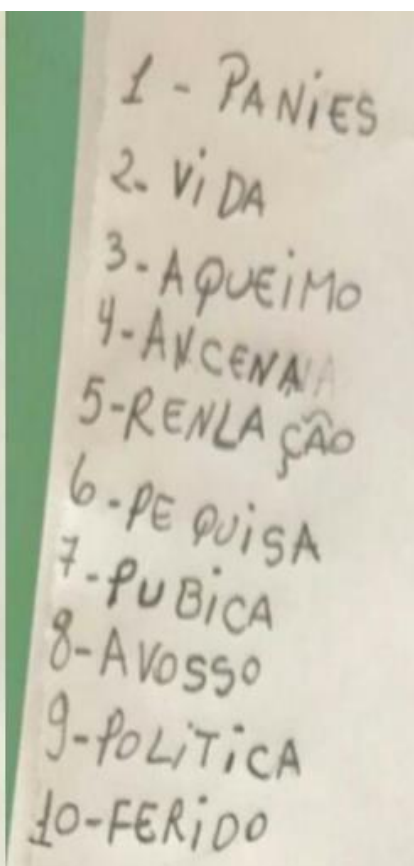 1 - PANiES
2. ViDA
3 - AQUEiMO
4 - ANCENA
5 - RENLAÇÃO
6 - PEQUiSA
7 - PUBiCA
8 - AVOSSO
9 - POLiTiCA
10 - FERiDO